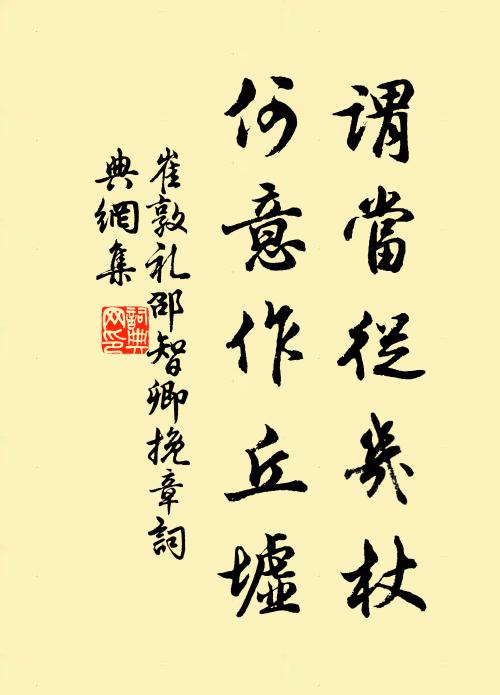 謂當從幾杖
何意作丘墟
崔敦礼邵智卿挽章詞
典網集
詞典
网印